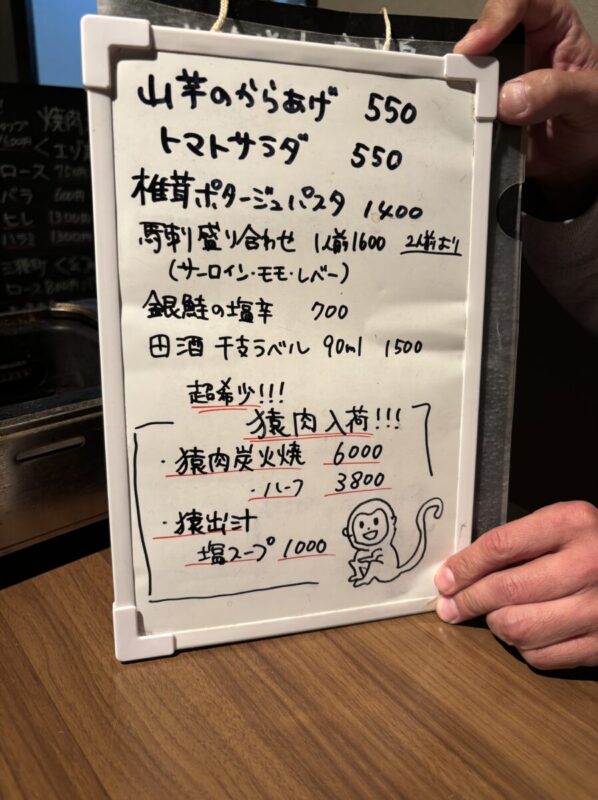 山芋のからあげ 550
トマトサラダ 550
椎茸ポタージュパスタ 1400
馬刺し盛り合わせ 1人前1600 2人前より
(サーロイン・モモ・レバー)
銀鮭の塩辛 700
田酒 干支ラベル 90ml 1500
超希少!!!
猿肉入荷!!!
・猿肉炭火焼 6000
・ハーフ 3800
・猿出汁
塩スープ 1000
焼肉
ロース
バラ 600円
ヒレ 1300円
ハラミ 1300円
ロース